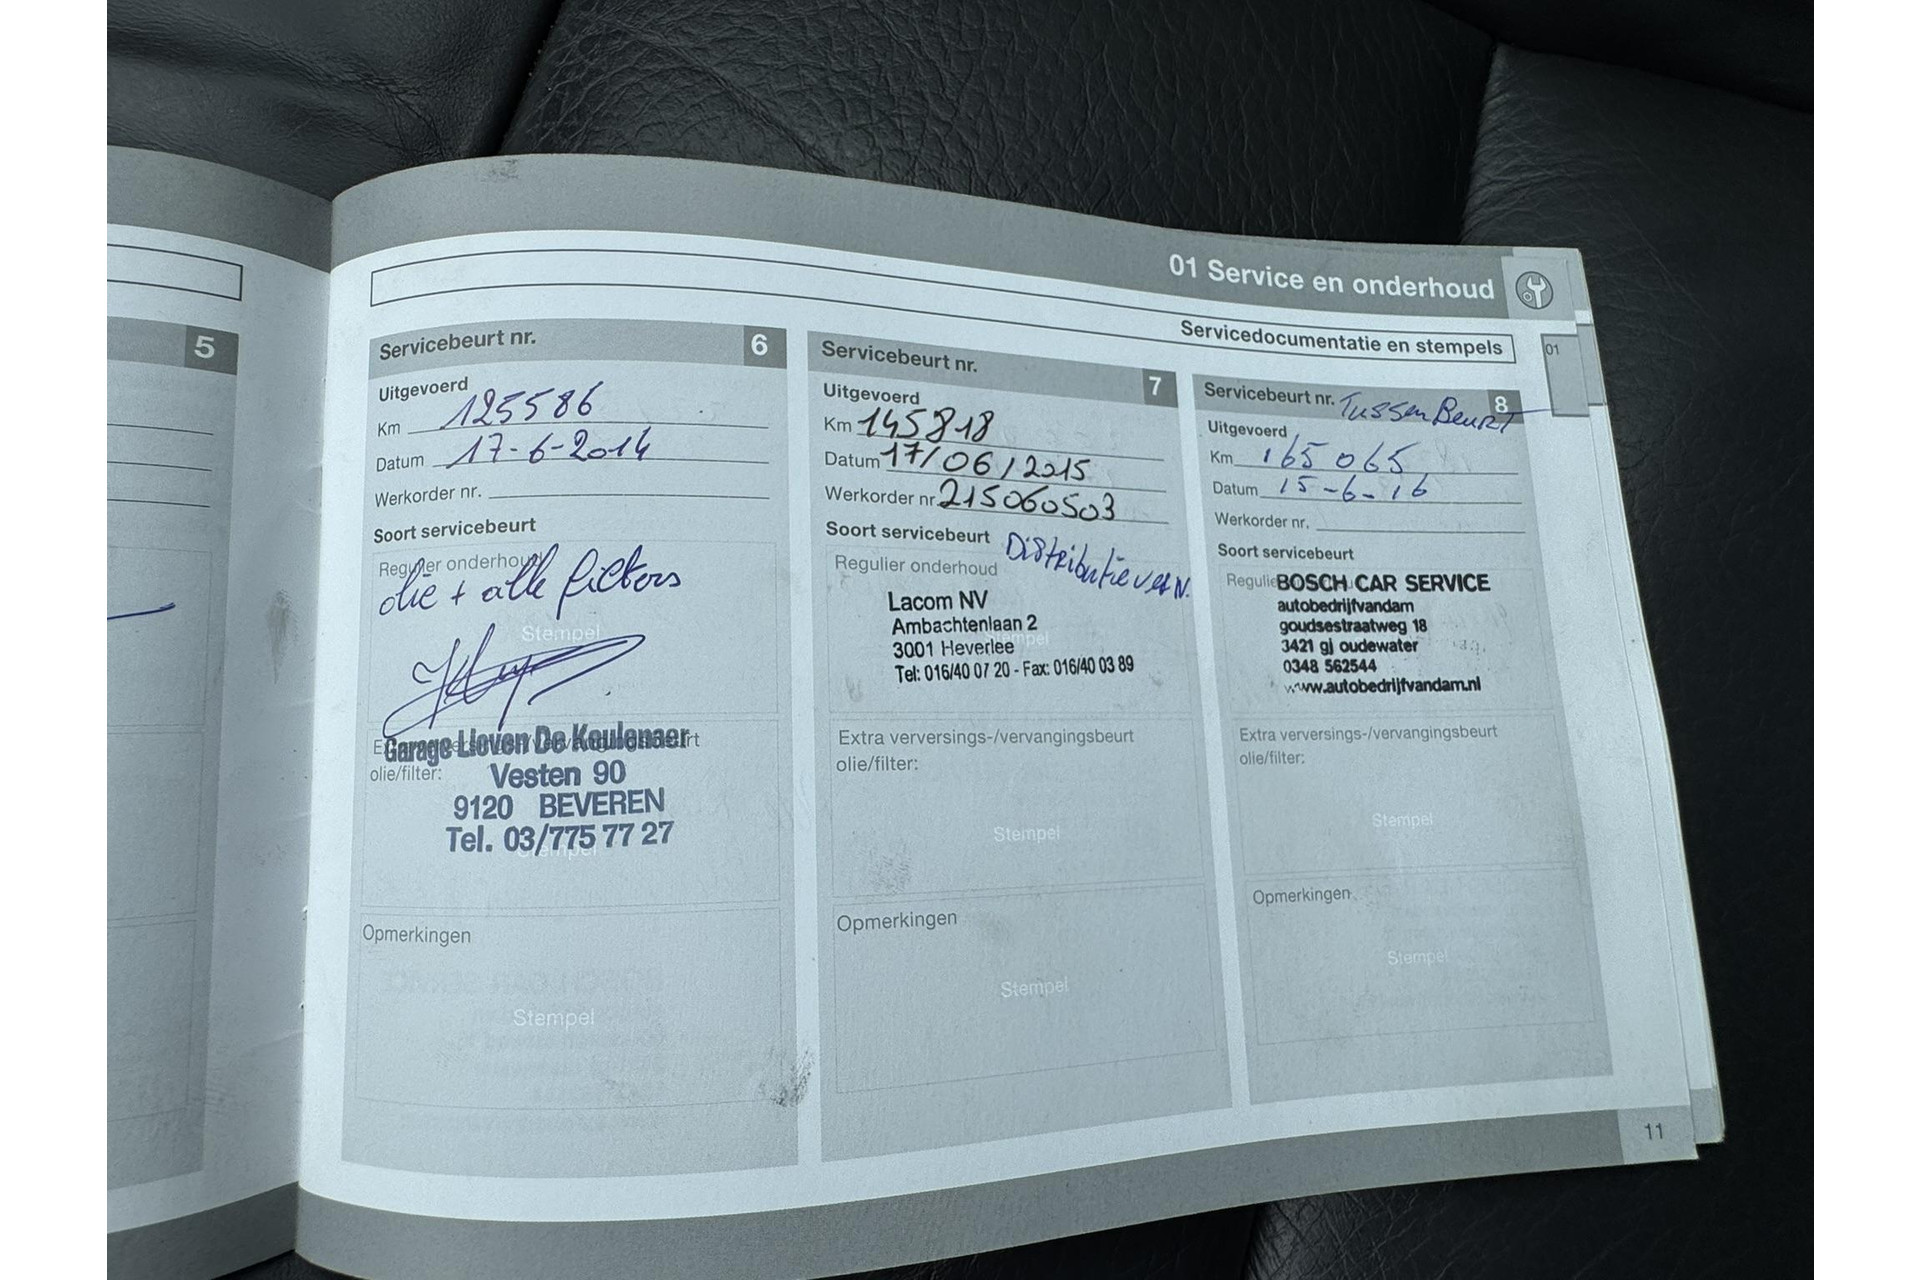 01 Service en onderhoud
Servicedocumentatie en stempels
01
5
Servicebeurt nr. 6
Uitgevoerd
Km 125586
Datum 17-6-2014
Werkorder nr.
Soort servicebeurt
Regulier onderhoud
olie + alle filters
Stempel
Garage Lieven De Keulenaer
Extra verversings-/vervangingsbeurt
olie/filter:
Vesten 90
9120 BEVEREN
Tel. 03/775 77 27
Stempel
Opmerkingen
Stempel
Servicebeurt nr. 7
Uitgevoerd
Km 145818
Datum 17/06/2015
Werkorder nr. 215060503
Soort servicebeurt
Distributie verv.
Regulier onderhoud
Lacom NV
Ambachtenlaan 2
Stempel
3001 Heverlee
Tel: 016/40 07 20 - Fax: 016/40 03 89
Extra verversings-/vervangingsbeurt
olie/filter:
Stempel
Opmerkingen
Stempel
Servicebeurt nr. TussenBeurt 8
Uitgevoerd
Km 165065
Datum 15-6-16
Werkorder nr.
Soort servicebeurt
Regulie
BOSCH CAR SERVICE
autobedrijfvandam
goudsestraatweg 18
3421 gj oudewater
0348 562544
www.autobedrijfvandam.nl
Extra verversings-/vervangingsbeurt
olie/filter:
Stempel
Opmerkingen
Stempel
11